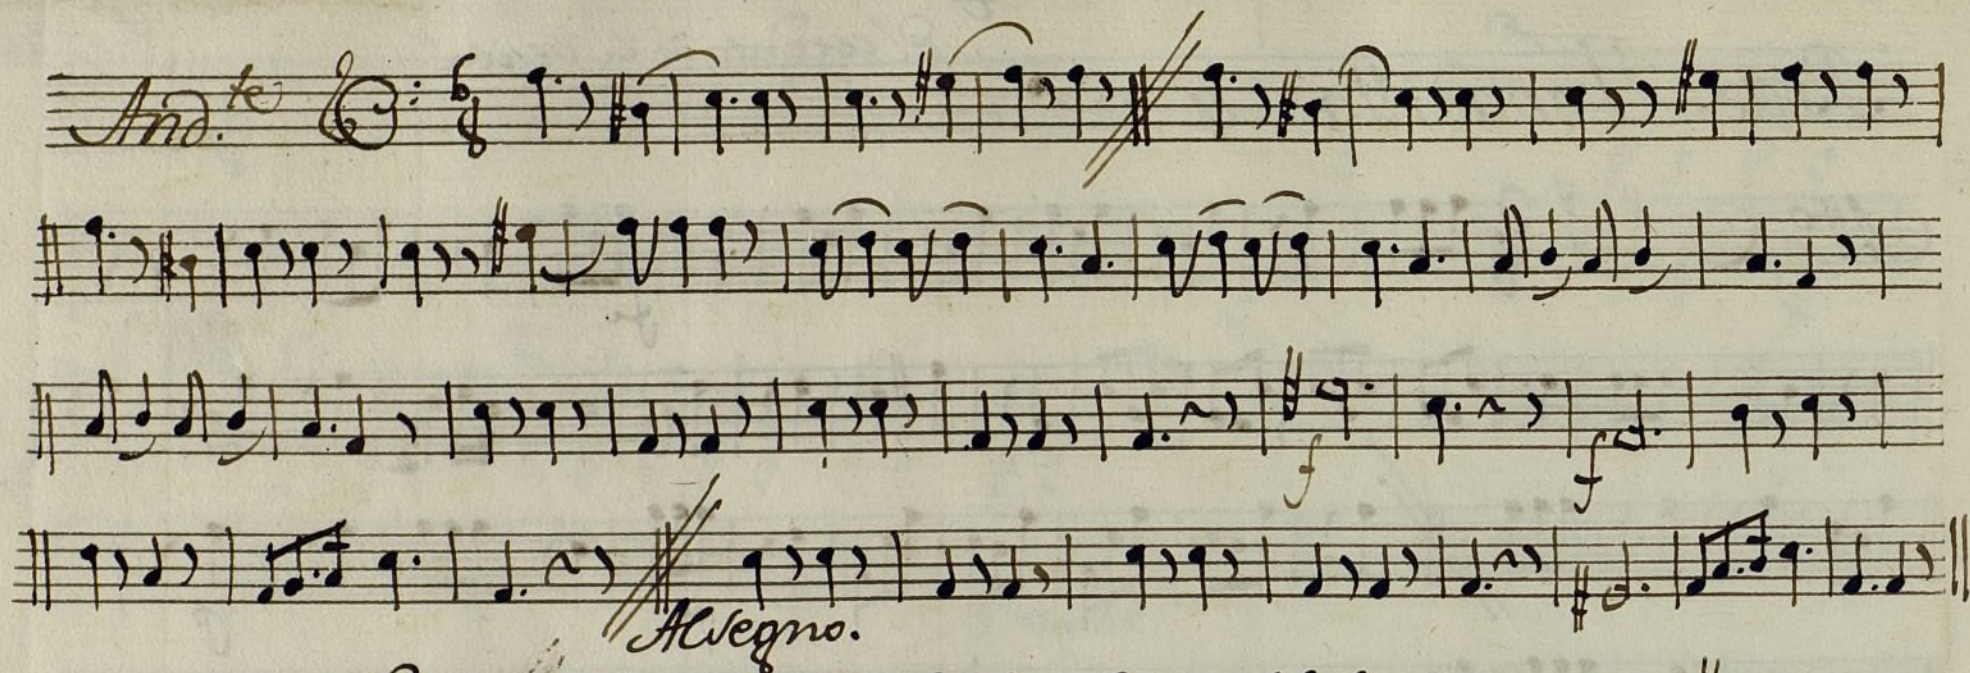 And.te 6 8
f f
Al Segno.